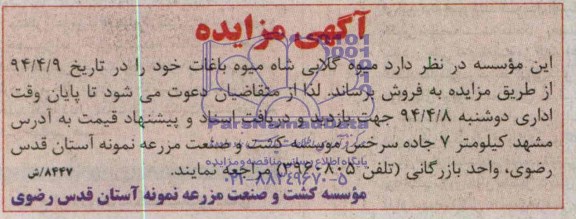 آگهی مزایده
این مؤسسه در نظر دارد میوه گلابی شاه میوه باغات خود را در تاریخ ۹۴/۴/۹
از طریق مزایده به فروش برساند. لذا از متقاضیان دعوت می شود تا پایان وقت
اداری دوشنبه ۹۴/۴/۸ جهت بازدید و دریافت اسناد و پیشنهاد قیمت به آدرس
مشهد کیلومتر ۷ جاده سرخس موسسه کشت و صنعت مزرعه نمونه آستان قدس
رضوی، واحد بازرگانی (تلفن مراجعه نمایند.
۸۴۴۷/ش
مؤسسه کشت و صنعت مزرعه نمونه آستان قدس رضوی
ParsNamadData
پایگاه اطلاع رسانی مناقصه و مزایده
۰۲۱-۸۸۳۴۹۶۷۰-۵